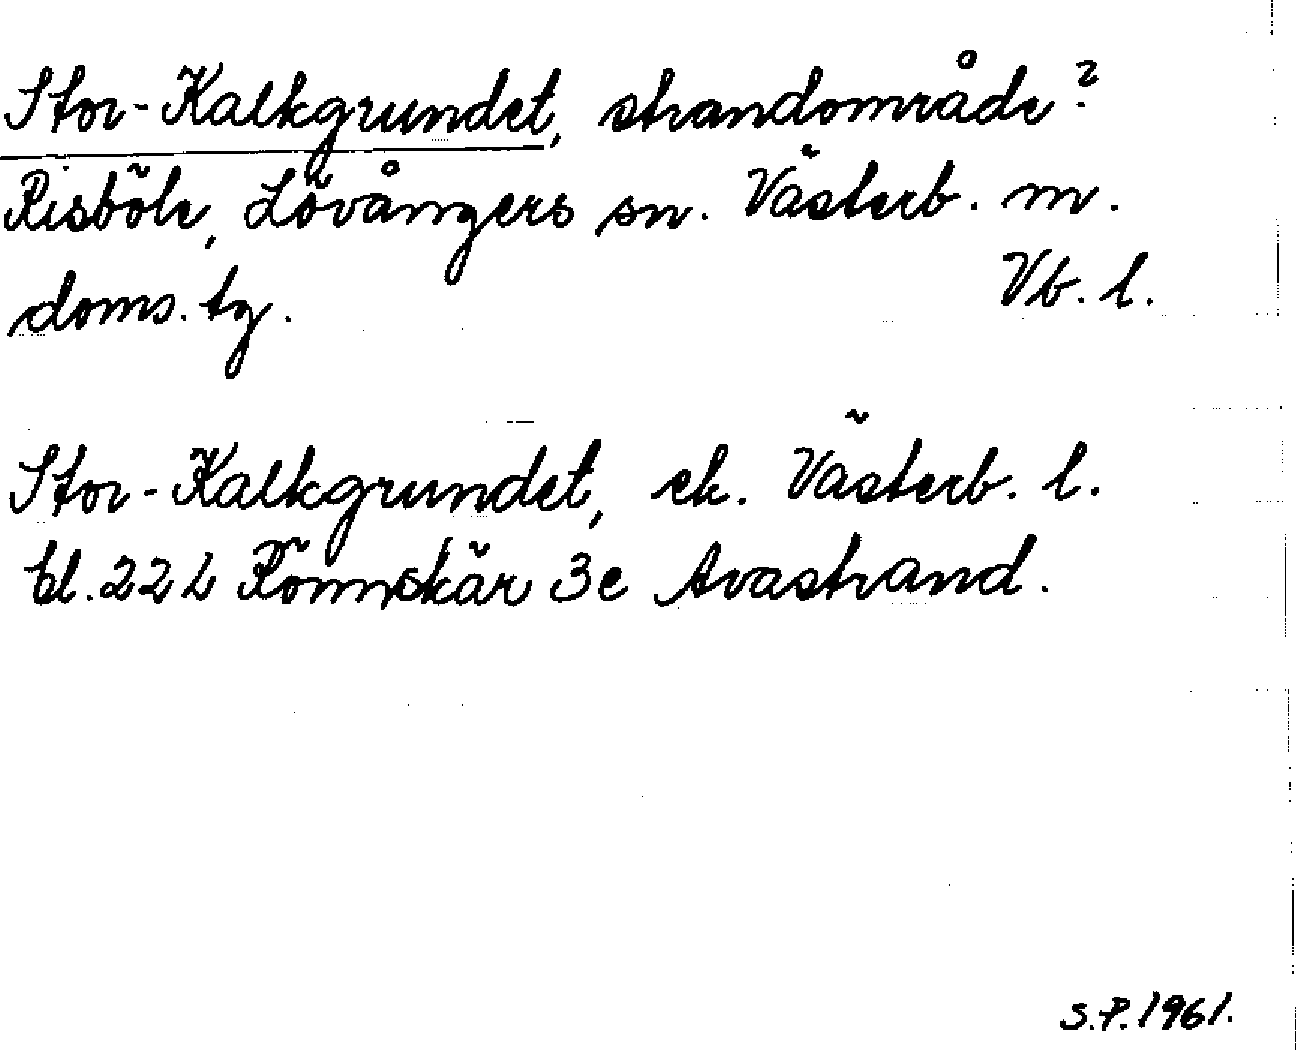 Stor-Kalkgrundet, strandområde?
Risböle, Lövångers sn. Västerb. m.
doms. tg. Vb. l.
Stor-Kalkgrundet, ek. Västerb. l.
bl. 22 L Rönnskär 3e Avastrand.
S.P. 1961.